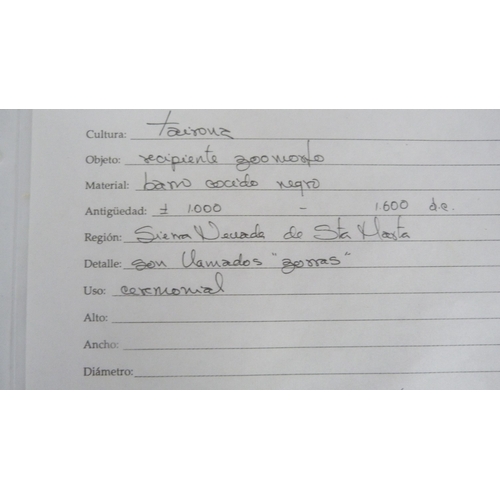 Cultura: Tairona
Objeto: recipiente zoomorfo
Material: barro cocido negro
Antigüedad: ± 1.000 - 1.600 d.c.
Región: Sierra Nevada de Sta Marta
Detalle: son llamados "zorras"
Uso: ceremonial
Alto:
Ancho:
Diámetro: